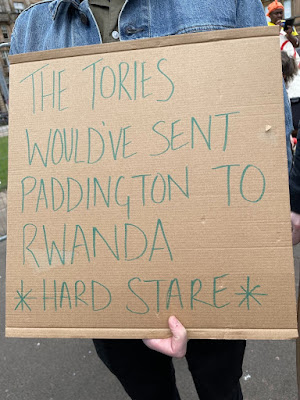 THE TORIES
WOULD'VE SENT
PADDINGTON TO
RWANDA
*HARD STARE*